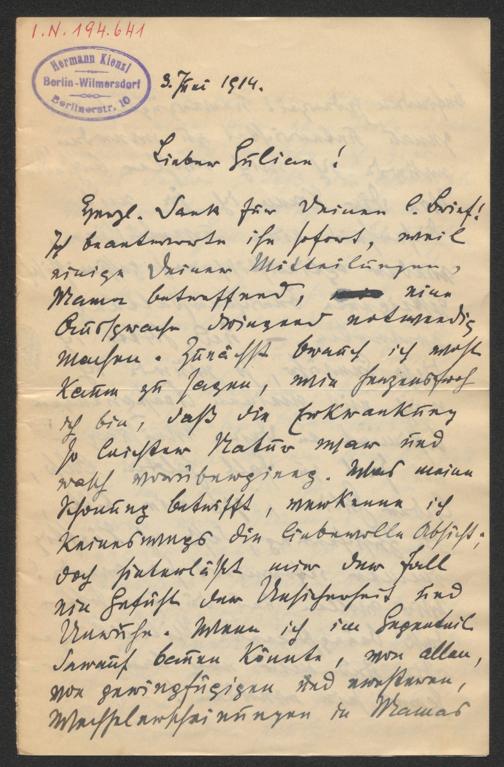 I.N. 194.641
Hermann Kienzl
Berlin-Wilmersdorf
Berlinerstr. 10
3. Juni 1914.
Lieber Julian!
Herzl. Dank für Deinen l. Brief!
Ich beantworte ihn sofort, weil
einige Deiner Mitteilungen,
Mama betreffend, eine
Aussprache dringend notwendig
machen. Zunächst brauch ich wohl
kaum zu sagen, wie herzensfroh
ich bin, daß die Erkrankung
so leichter Natur war und
rasch vorüberging. Was meine
Schonung betrifft, verkenne ich
keineswegs die liebevolle Absicht;
doch hinterläßt mir der Fall
ein Gefühl der Unsicherheit und
Unruhe. Wenn ich im Gegenteil
darauf bauen könnte, von allen,
von geringfügigen und ernsteren,
Wechselerscheinungen in Mamas